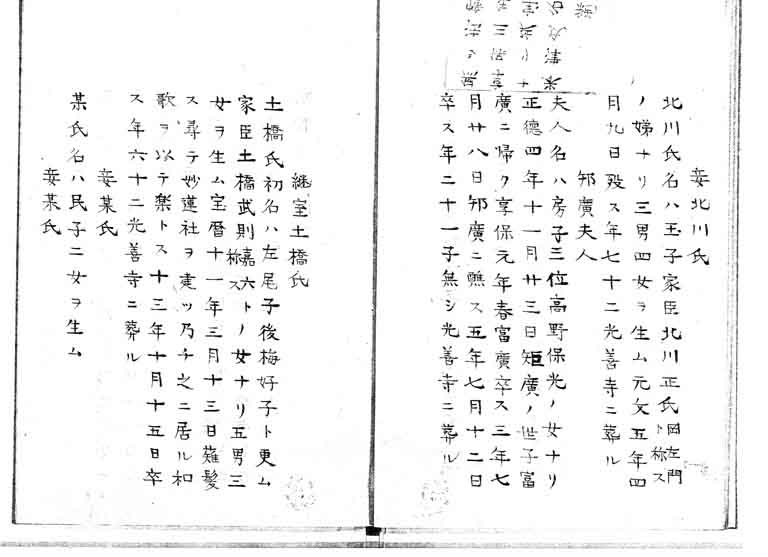 妾北川氏
北川氏名ハ玉子家臣北川正氏岡左門ト称ス
ノ娣ナリ三男四女ヲ生ム元文五年四
月九日歿ス年七十二光善寺ニ葬ル
邦廣夫人
夫人名ハ房子三位高野保光ノ女ナリ
正徳四年十一月廿三日矩廣ノ世子富
廣ニ帰ク享保元年春富廣卒ス三年七
月廿八日邦廣ニ醮ス五年七月十二日
卒ス年二十一子無シ光善寺ニ葬ル
継室土橋氏
土橋氏初名ハ左尾子後梅好子ト更ム
家臣土橋武則嘉六ト称スノ女ナリ五男三
女ヲ生ム宝暦十一年三月十三日薙髪
ス尋テ妙蓮社ヲ建ツ乃チ之ニ居ル和
歌ヲ以テ楽トス十三年十月十五日卒
ス年六十二光善寺ニ葬ル
妾某氏
某氏名ハ民子二女ヲ生ム
妾某氏